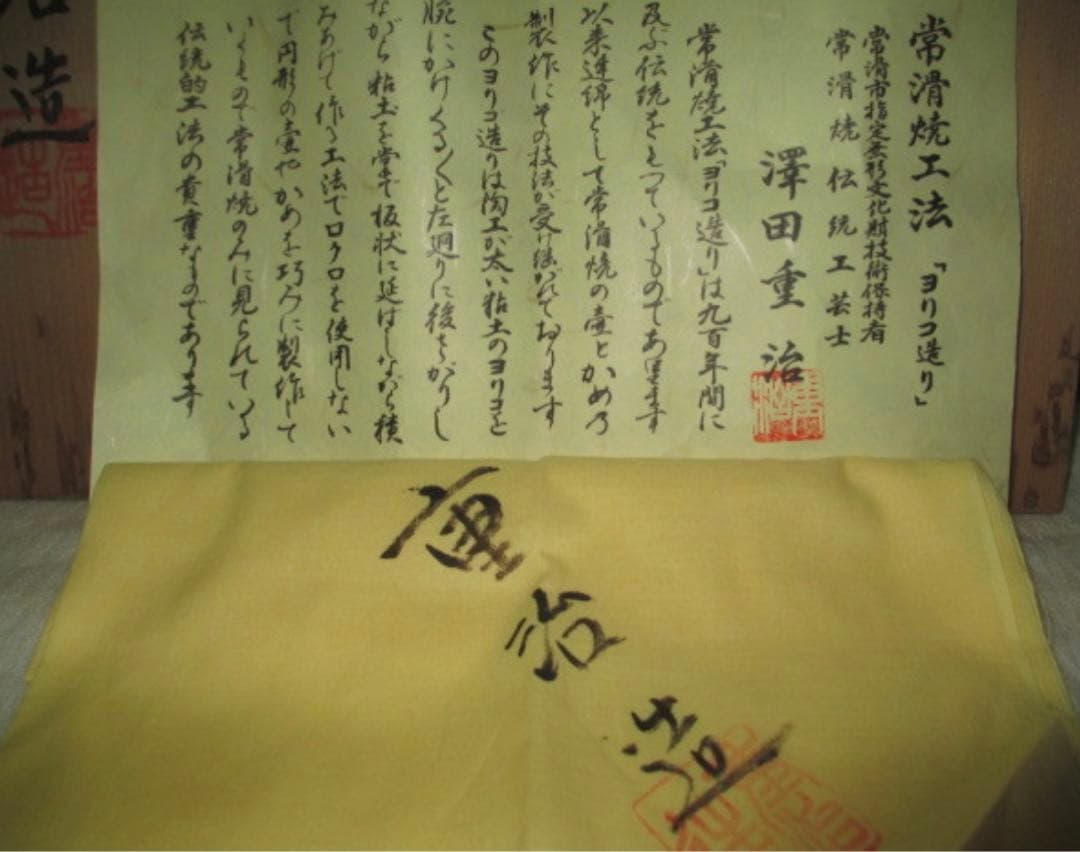 常滑焼工法「ヨリコ造り」
常滑市指定無形文化財技術保持者
常滑焼伝統工芸士
澤田重治
常滑焼工法「ヨリコ造り」は九百年間に
及ぶ伝統をもっているものであります
以来連綿として常滑焼の壷とかめの
製作にその技法が受け継がれております
このヨリコ造りは陶工が太い粘土のヨリコを
腕にかけくるくと左廻りに後ずがりし
ながら粘土を掌で板状に延ばしながら積
みあげて作る工法でロクロを使用しない
で円形の壷やかめを巧みに製作して
いるもので常滑焼のみに見られている
伝統的工法の貴重なものであります
治造
重治造